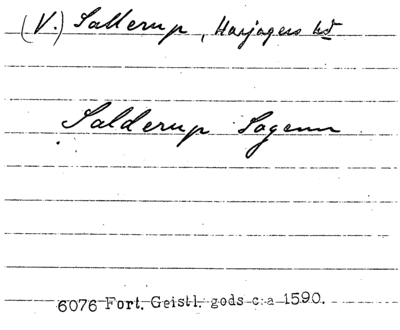 (V.) Sallerup, Harjagers hd
Salderup Sogenn
6076 Fort. Geistl. gods c:a 1590.